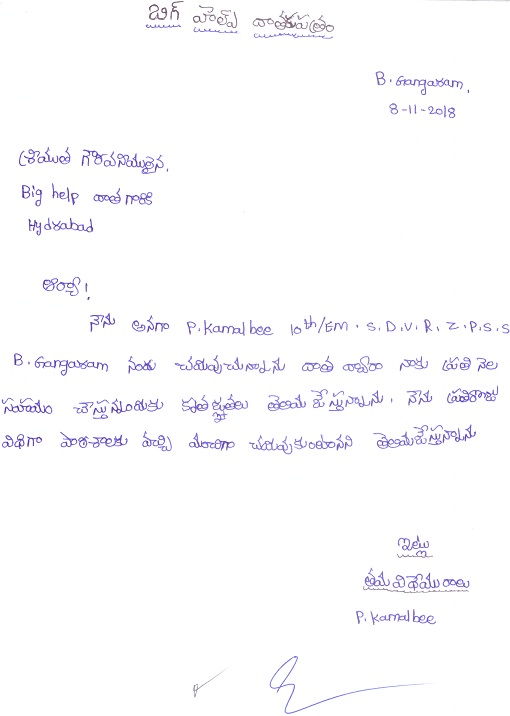 బిగ్ హెల్ప్ దాతకు పత్రం
B. Gangaram,
8-11-2018
శ్రీయుత గౌరవనియులైన,
Big help దాత గారికి
Hyderabad
ఆర్యా!
నేను అనగా P. Kamalbee 10th/EM. S. D. V. R. Z. P. S. S
B. Gangaram నందు చదువుచున్నాను దాత ద్వారా నాకు ప్రతి నెల
సహయం చేస్తున్నందుకు కృతజ్ఞతలు తెలియజేస్తున్నాను. నేను ప్రతిరోజు
విధిగా పాఠశాలకు వచ్చి మంచిగా చదువుకుంటానని తెలియజేస్తున్నాను
ఇట్లు
తమ విధేయురాలు
P. Kamalbee